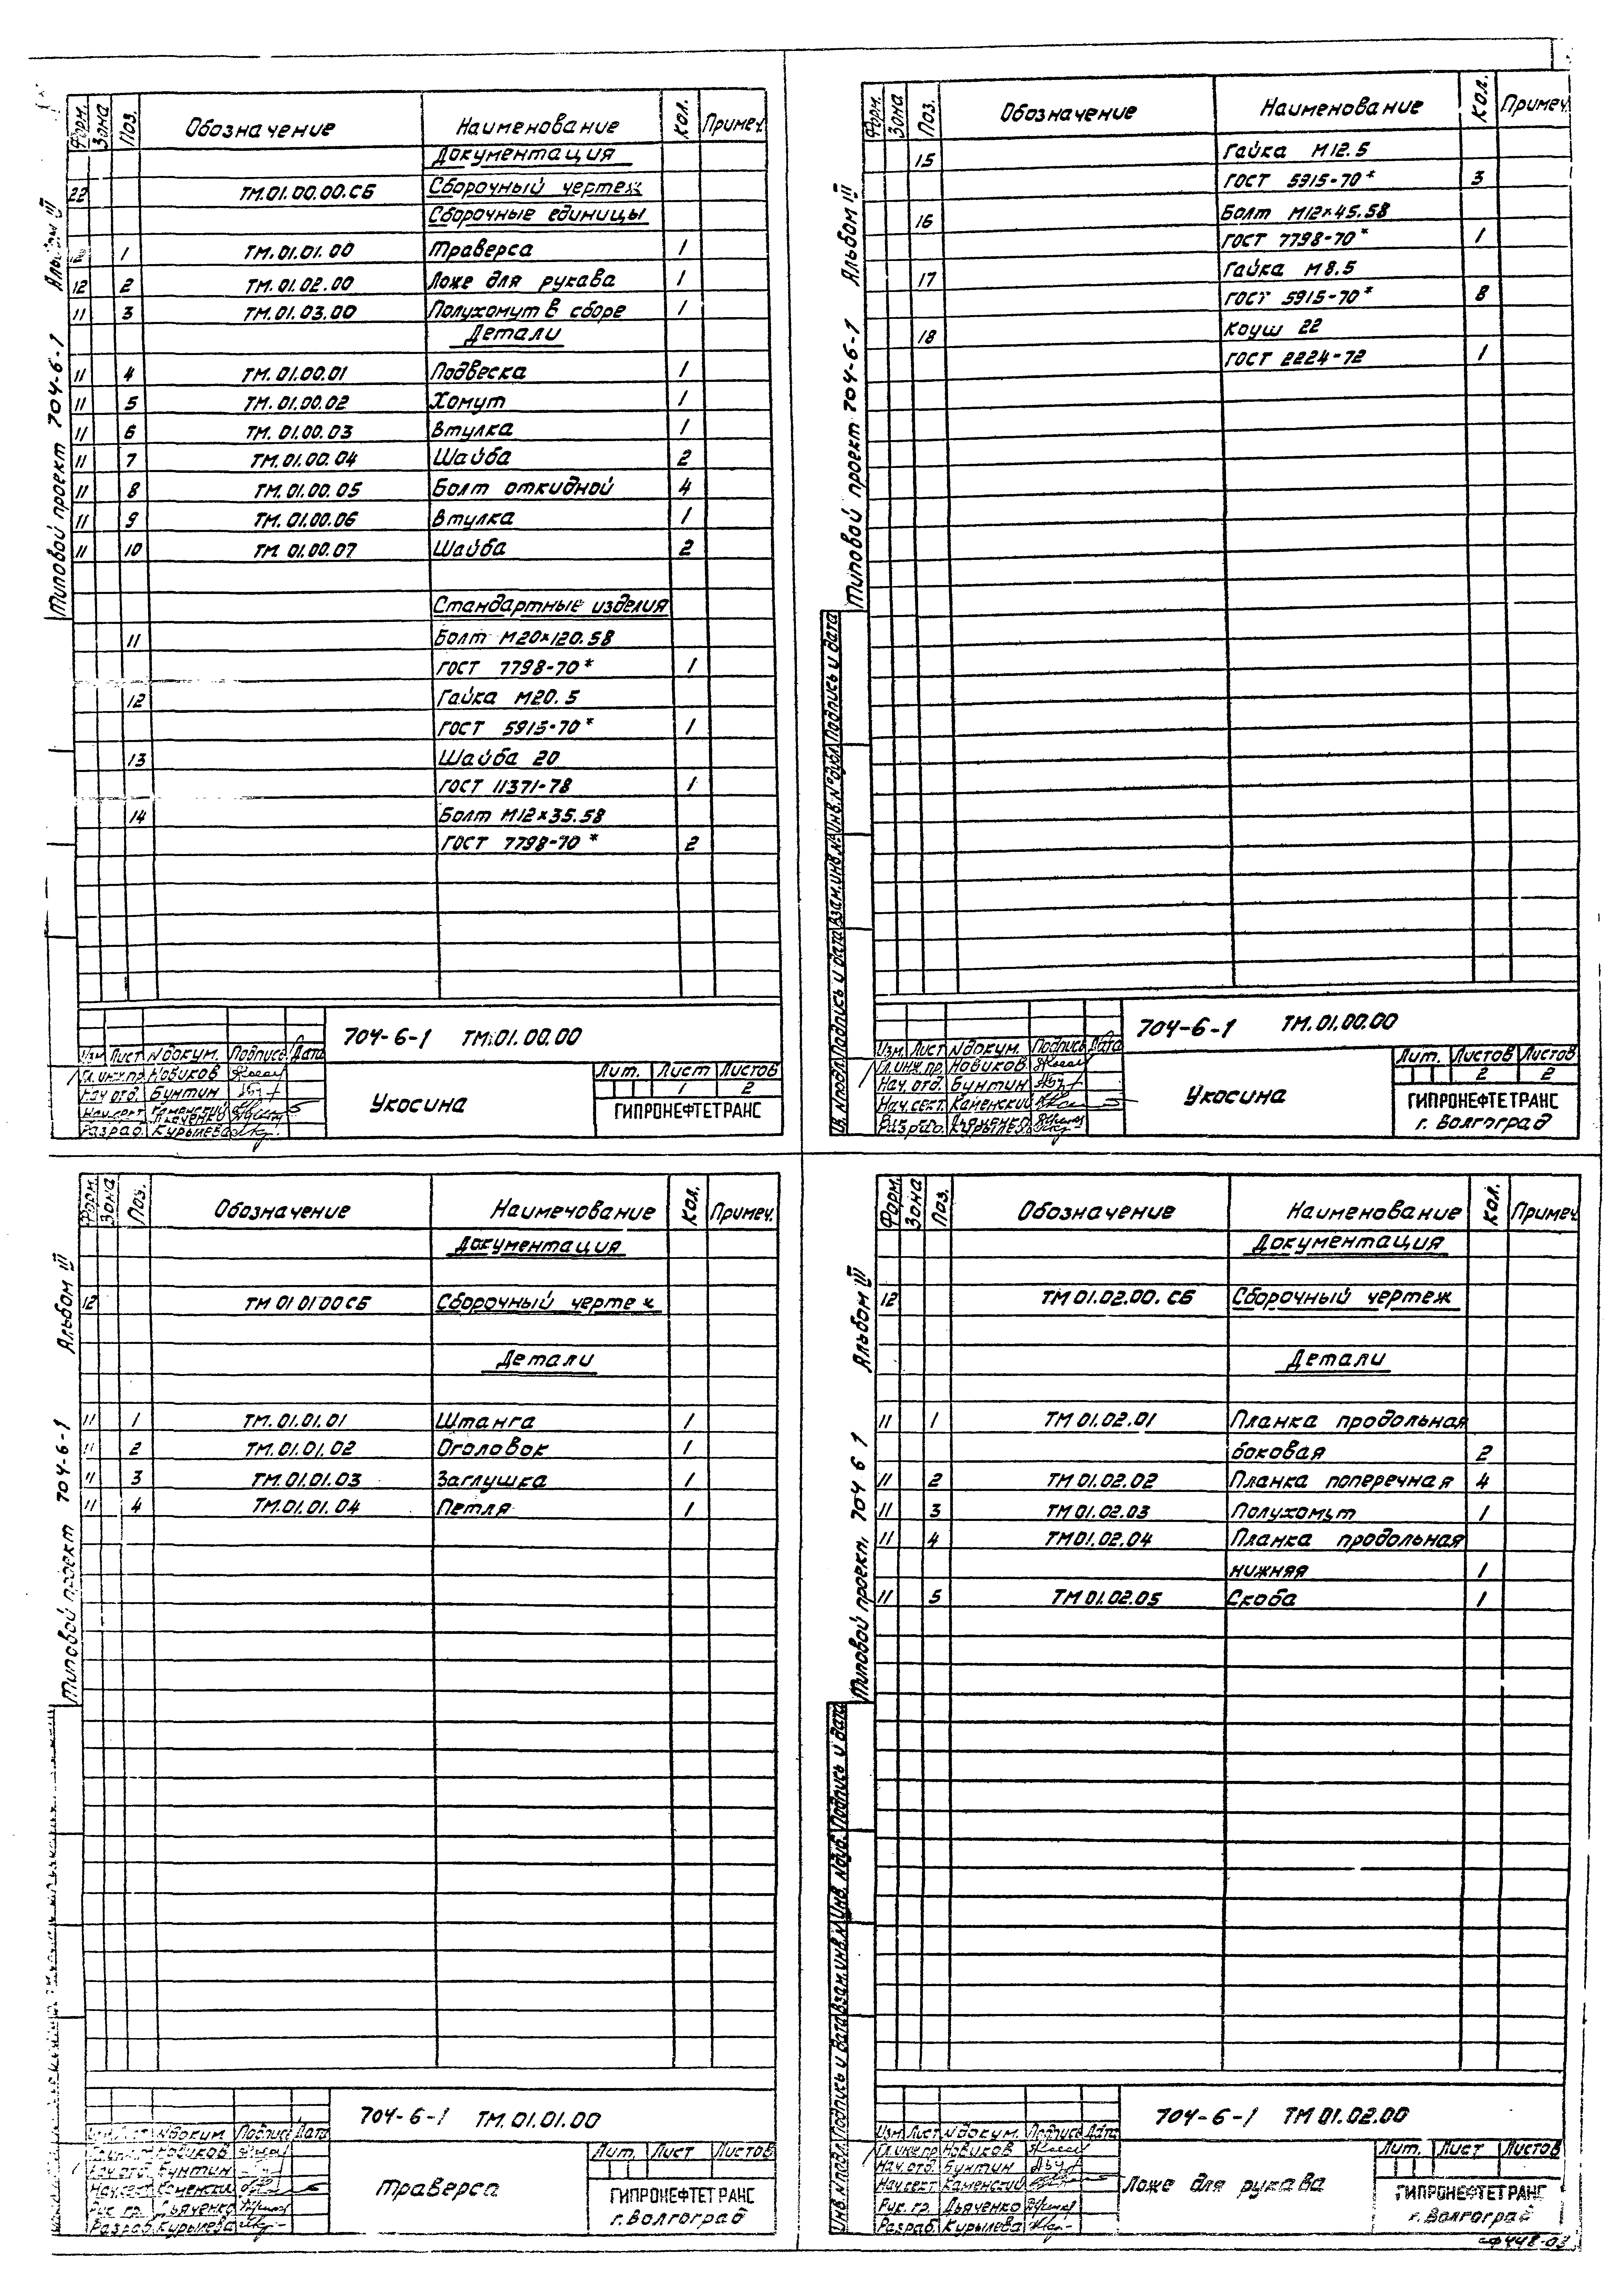 Альбом III
Типовой проект 704-6-1
Форм. Зона Поз. Обозначение Наименование Кол. Примеч.
Документация
22 ТМ.01.00.00.СБ Сборочный чертеж
Сборочные единицы
1 ТМ.01.01.00 Траверса 1
12 2 ТМ.01.02.00 Ложе для рукава 1
11 3 ТМ.01.03.00 Полухомут в сборе 1
Детали
11 4 ТМ.01.00.01 Подвеска 1
11 5 ТМ.01.00.02 Хомут 1
11 6 ТМ.01.00.03 Втулка 1
11 7 ТМ.01.00.04 Шайба 2
11 8 ТМ.01.00.05 Болт откидной 4
11 9 ТМ.01.00.06 Втулка 1
11 10 ТМ 01.00.07 Шайба 2
Стандартные изделия
11 Болт М20×120.58
ГОСТ 7798-70* 1
12 Гайка М20.5
ГОСТ 5915-70* 1
13 Шайба 20
ГОСТ 11371-78 1
14 Болт М12×35.58
ГОСТ 7798-70* 2
704-6-1 ТМ.01.00.00
Изм Лист № докум. Подпись Дата
Гл.инж.пр. Новиков
Нач.отд. Бунтин
Нач.сект. Каменский
Разраб. Курылева
Укосина
Лит. Лист Листов
1 2
ГИПРОНЕФТЕТРАНС
Альбом III
Типовой проект 704-6-1
Форм. Зона Поз. Обозначение Наименование Кол. Примеч.
15 Гайка М12.5
ГОСТ 5915-70* 3
16 Болт М12×45.58
ГОСТ 7798-70* 1
17 Гайка М8.5
ГОСТ 5915-70* 8
18 Коуш 22
ГОСТ 2224-72 1
Подпись и дата
Инв.№ дубл.
Взам.инв.№
Подпись и дата
704-6-1 ТМ.01.00.00
Изм. Лист № докум. Подпись Дата
Гл.инж.пр. Новиков
Нач.отд. Бунтин
Нач.сект. Каменский
Разраб. Курылева
Укосина
Лит. Листов Листов
2 2
ГИПРОНЕФТЕТРАНС
г. Волгоград
Альбом III
Типовой проект 704-6-1
Форм. Зона Поз. Обозначение Наименование Кол. Примеч.
Документация
12 ТМ 01 01 00 СБ Сборочный чертеж
Детали
11 1 ТМ.01.01.01 Штанга 1
11 2 ТМ.01.01.02 Оголовок 1
11 3 ТМ.01.01.03 Заглушка 1
11 4 ТМ.01.01.04 Петля 1
704-6-1 ТМ.01.01.00
Изм Лист № докум. Подпись Дата
Гл.инж.пр. Новиков
Нач.отд. Бунтин
Нач.сект. Каменский
Рук. гр. Дьяченко
Разраб. Курылева
Траверса
Лит. Лист Листов
ГИПРОНЕФТЕТРАНС
г. Волгоград
Альбом III
Типовой проект 704 6 1
Форм. Зона Поз. Обозначение Наименование Кол. Примеч.
Документация
12 ТМ 01.02.00.СБ Сборочный чертеж
Детали
11 1 ТМ 01.02.01 Планка продольная
боковая 2
11 2 ТМ 01.02.02 Планка поперечная 4
11 3 ТМ 01.02.03 Полухомут 1
11 4 ТМ 01.02.04 Планка продольная
нижняя 1
11 5 ТМ 01.02.05 Скоба 1
Подпись и дата
Инв. № дуб.
Взам.инв.№
Подпись и дата
Инв.№ подл.
704-6-1 ТМ 01.02.00
Изм. Лист № докум. Подпись Дата
Гл.инж.пр. Новиков
Нач.отд. Бунтин
Нач.сект. Каменский
Рук. гр. Дьяченко
Разраб. Курылева
Ложе для рукава
Лит. Лист Листов
ГИПРОНЕФТЕТРАНС
г. Волгоград
сф 448-03